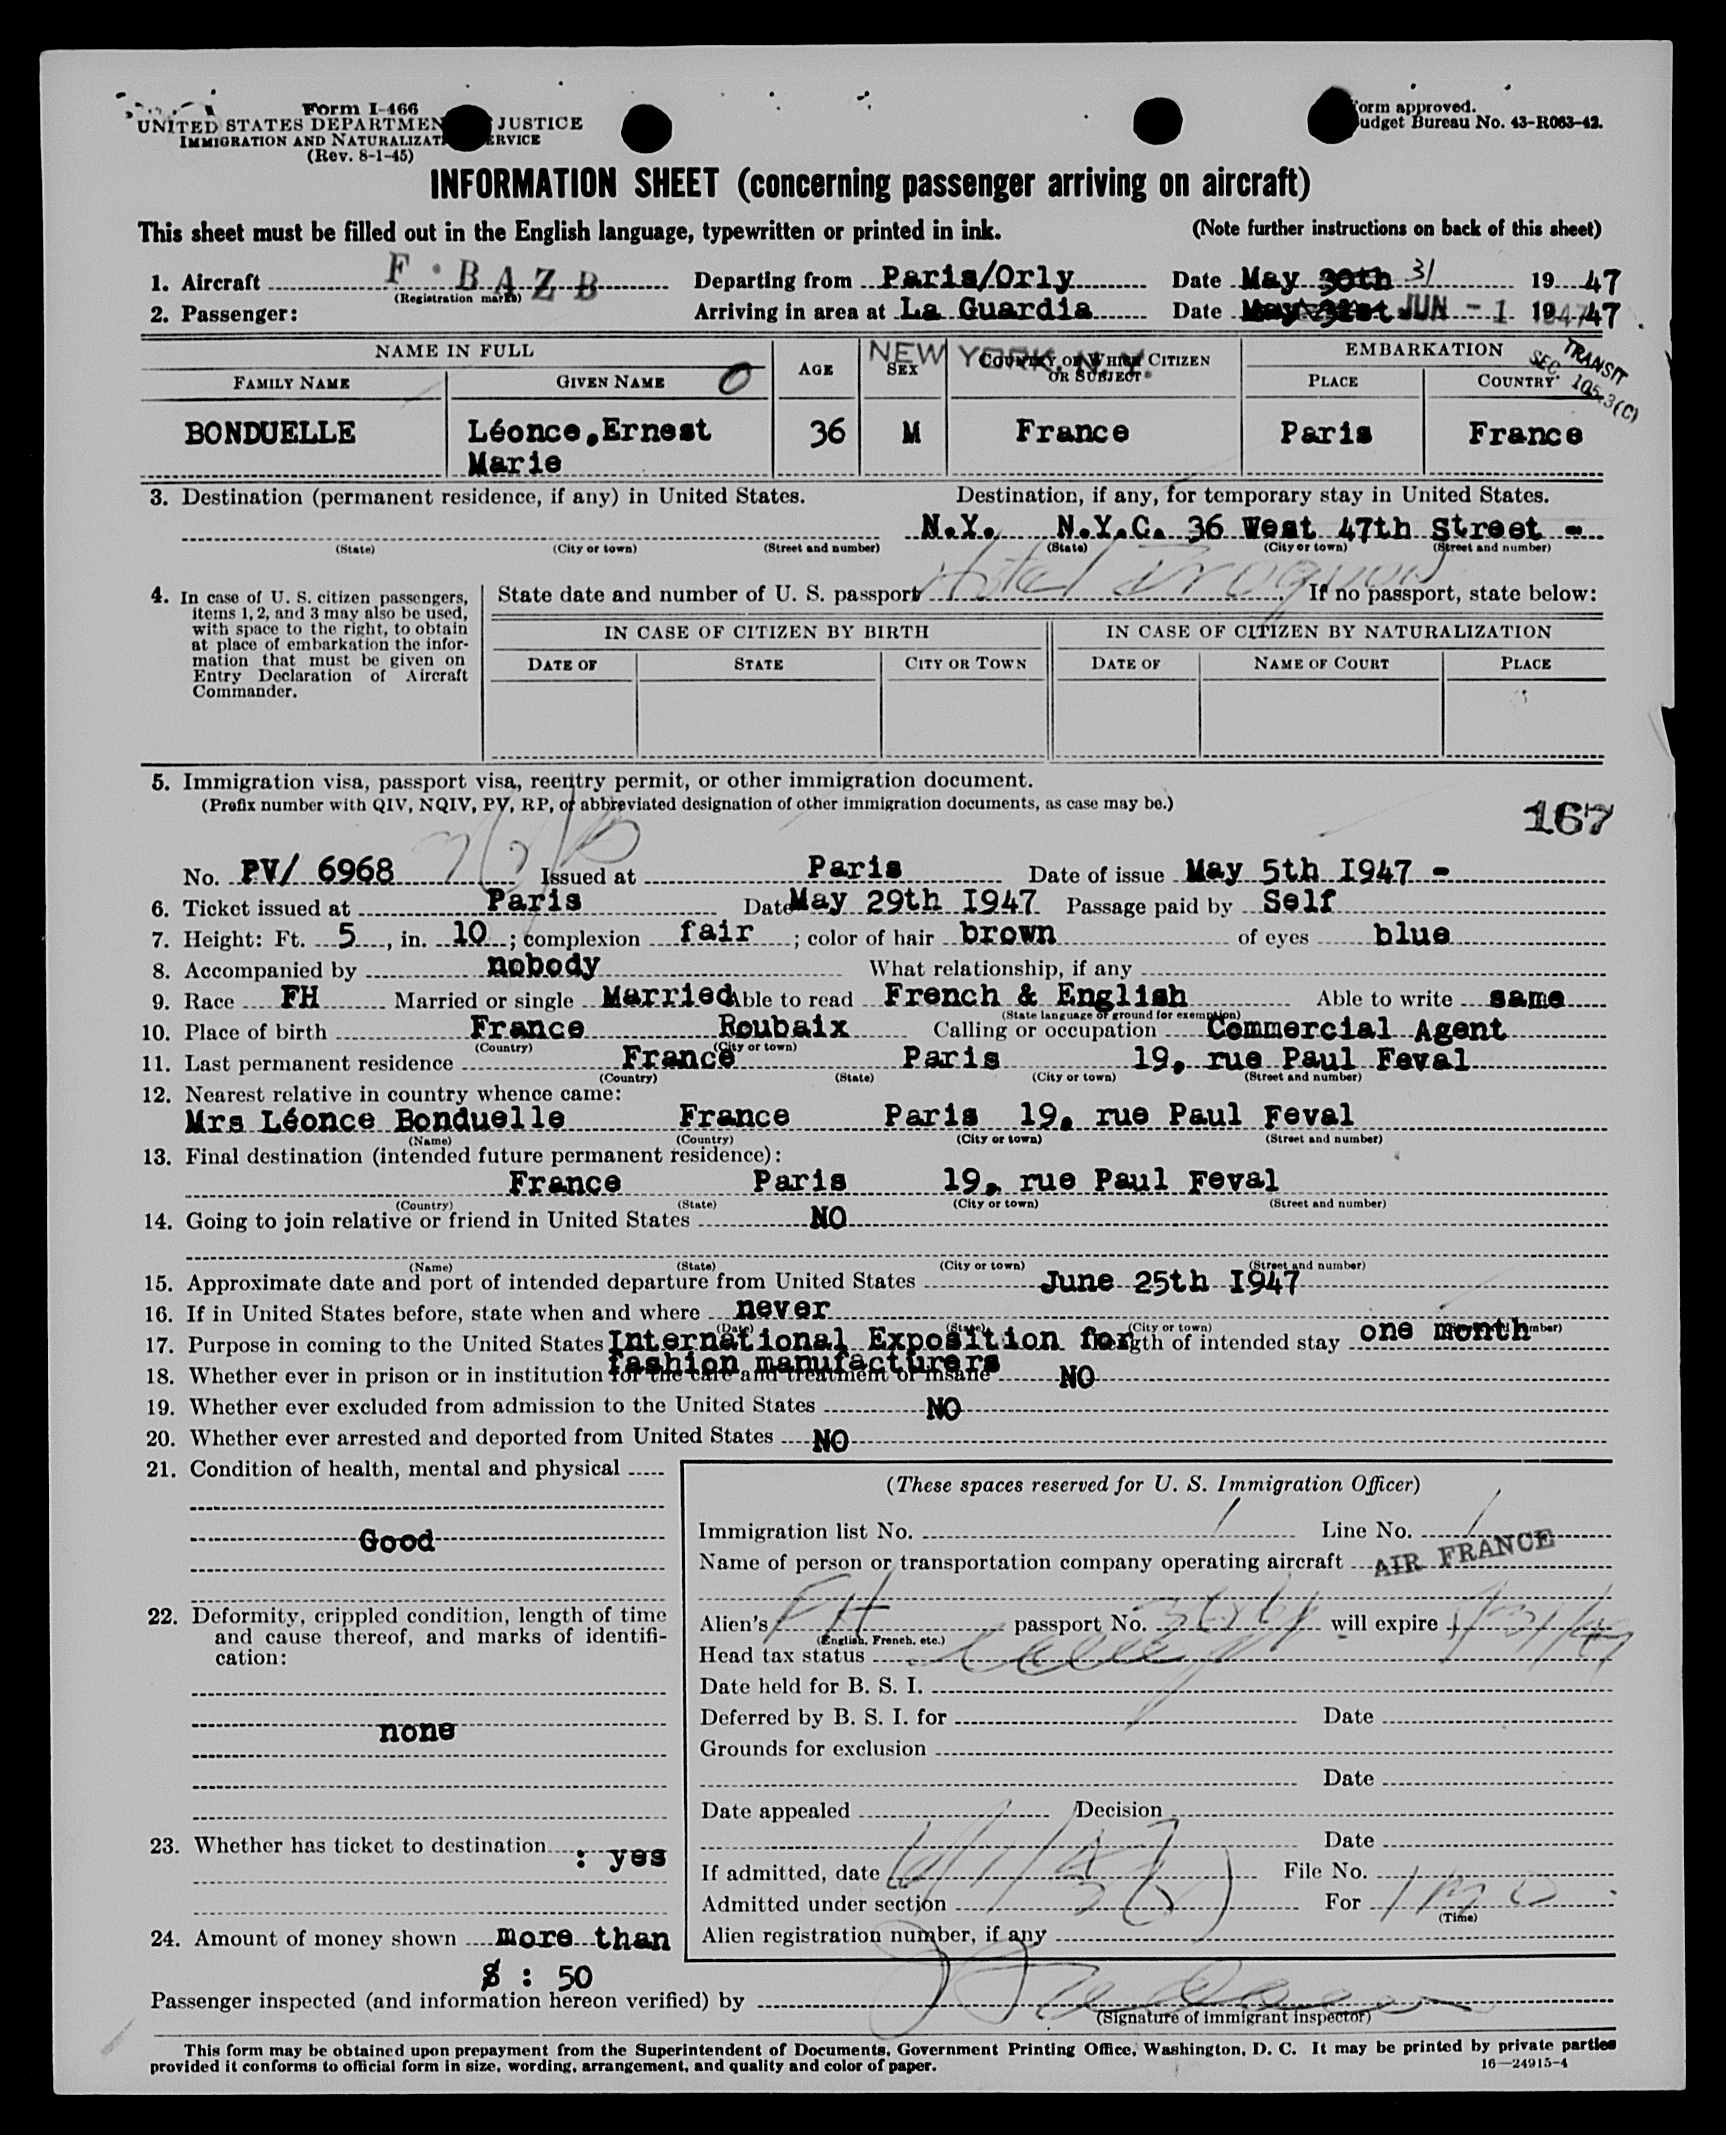 Form I-466
UNITED STATES DEPARTMEN JUSTICE
IMMIGRATION AND NATURALIZAT ERVICE
(Rev. 8-1-45)
orm approved.
udget Bureau No. 43-R063-42.
INFORMATION SHEET (concerning passenger arriving on aircraft)
This sheet must be filled out in the English language, typewritten or printed in ink. (Note further instructions on back of this sheet)
1. Aircraft F·BAZB Departing from Paris/Orly Date May 30th 31 1947
(Registration marks)
2. Passenger: Arriving in area at La Guardia Date May 31st JUN -1 1947 1947
NEW YORK, N.Y.
TRANSIT
SEC. 105.3(C)
NAME IN FULL AGE SEX COUNTRY OF WHICH CITIZEN OR SUBJECT EMBARKATION
FAMILY NAME GIVEN NAME PLACE COUNTRY
BONDUELLE Léonce.Ernest 36 M France Paris France
Marie
3. Destination (permanent residence, if any) in United States. Destination, if any, for temporary stay in United States.
N.Y. N.Y.C. 36 West 47th Street -
(State) (City or town) (Street and number) (State) (City or town) (Street and number)
Hotel Iroquois
4. In case of U. S. citizen passengers, items 1, 2, and 3 may also be used, with space to the right, to obtain at place of embarkation the information that must be given on Entry Declaration of Aircraft Commander.
State date and number of U. S. passport If no passport, state below:
IN CASE OF CITIZEN BY BIRTH IN CASE OF CITIZEN BY NATURALIZATION
DATE OF STATE CITY OR TOWN DATE OF NAME OF COURT PLACE
5. Immigration visa, passport visa, reentry permit, or other immigration document.
(Prefix number with QIV, NQIV, PV, RP, or abbreviated designation of other immigration documents, as case may be.)
167
No. PV/ 6968 Issued at Paris Date of issue May 5th I947 -
6. Ticket issued at Paris Date May 29th I947 Passage paid by Self
7. Height: Ft. 5, in. 10; complexion fair; color of hair brown of eyes blue
8. Accompanied by nobody What relationship, if any
9. Race FH Married or single Married Able to read French & English Able to write same
(State language or ground for exemption)
10. Place of birth France Roubaix Calling or occupation Commercial Agent
(Country) (City or town)
11. Last permanent residence France Paris 19, rue Paul Feval
(Country) (State) (City or town) (Street and number)
12. Nearest relative in country whence came:
Mrs Léonce Bonduelle France Paris 19, rue Paul Feval
(Name) (Country) (City or town) (Street and number)
13. Final destination (intended future permanent residence):
France Paris 19, rue Paul Feval
(Country) (State) (City or town) (Street and number)
14. Going to join relative or friend in United States NO
(Name) (State) (City or town) (Street and number)
15. Approximate date and port of intended departure from United States June 25th I947
16. If in United States before, state when and where never
(Date) (State) (City or town)
17. Purpose in coming to the United States International Exposition for Length of intended stay one month
fashion manufacturers
18. Whether ever in prison or in institution for the care and treatment of insane NO
19. Whether ever excluded from admission to the United States NO
20. Whether ever arrested and deported from United States NO
21. Condition of health, mental and physical
Good
22. Deformity, crippled condition, length of time
and cause thereof, and marks of identifi-
cation:
none
23. Whether has ticket to destination : yes
24. Amount of money shown more than
$ : 50
(These spaces reserved for U. S. Immigration Officer)
Immigration list No. 1 Line No. 1
Name of person or transportation company operating aircraft AIR FRANCE
Alien's FH passport No. will expire
(English, French, etc.)
Head tax status
Date held for B. S. I.
Deferred by B. S. I. for Date
Grounds for exclusion
Date
Date appealed Decision
Date
If admitted, date 6/1/47 File No.
Admitted under section 3(2) For 1 mo
(Time)
Alien registration number, if any
Passenger inspected (and information hereon verified) by
(Signature of immigrant inspector)
This form may be obtained upon prepayment from the Superintendent of Documents, Government Printing Office, Washington, D. C. It may be printed by private parties
provided it conforms to official form in size, wording, arrangement, and quality and color of paper. 16—24915-4